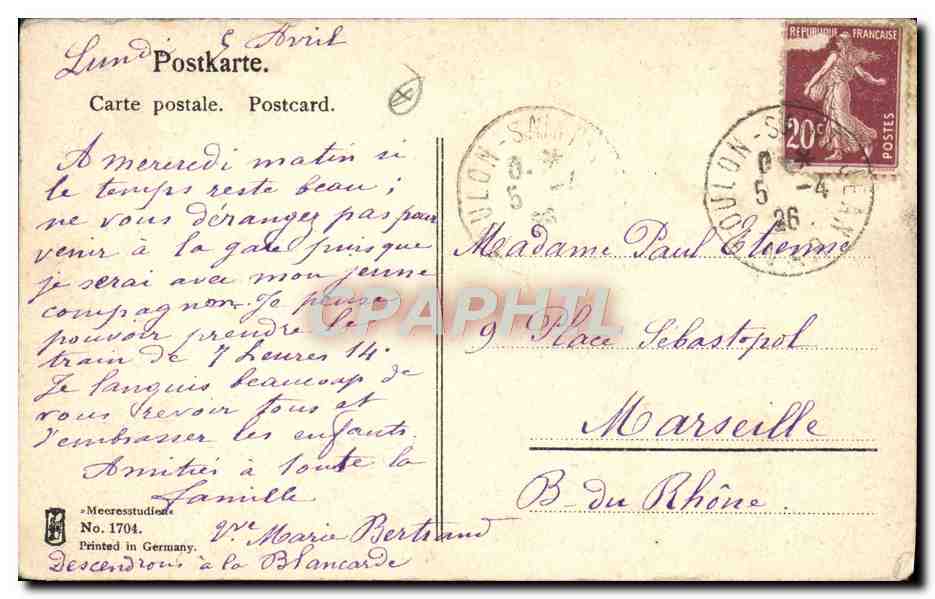 Lundi 5 Avril
Postkarte.
Carte postale. Postcard.
A mercredi matin si
le temps reste beau ;
ne vous dérangez pas pour
venir à la gare puisque
je serai avec mon jeune
compagnon. Je pense
pouvoir prendre le
train de 7 heures 14.
Je languis beaucoup de
vous revoir tous et
d'embrasser les enfants.
Amitiés à toute la
famille
Vve Marie Bertrand
Descendrons à la Blancarde
»Meeresstudien«
No. 1704.
Printed in Germany.
REPUBLIQUE FRANÇAISE
20c
POSTES
TOULON-S
5 -4
26
ULON-SAIN
5 -4
26
Madame Paul Etienne
9 Place Sébastopol
Marseille
B- du Rhône
CPAPHIL